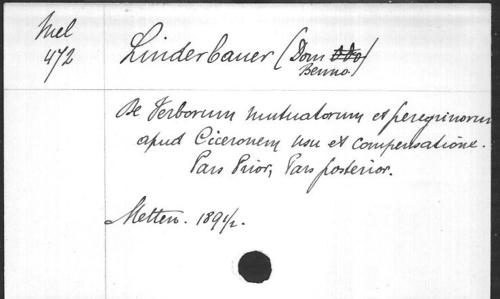 Mel
472
Linderbauer (Dom Odo)
Benno.
De Verborum mutuatorum et peregrinorum
apud Ciceronem usu et compensatione.
Pars Prior, Pars posterior.
Metten. 1891/2.